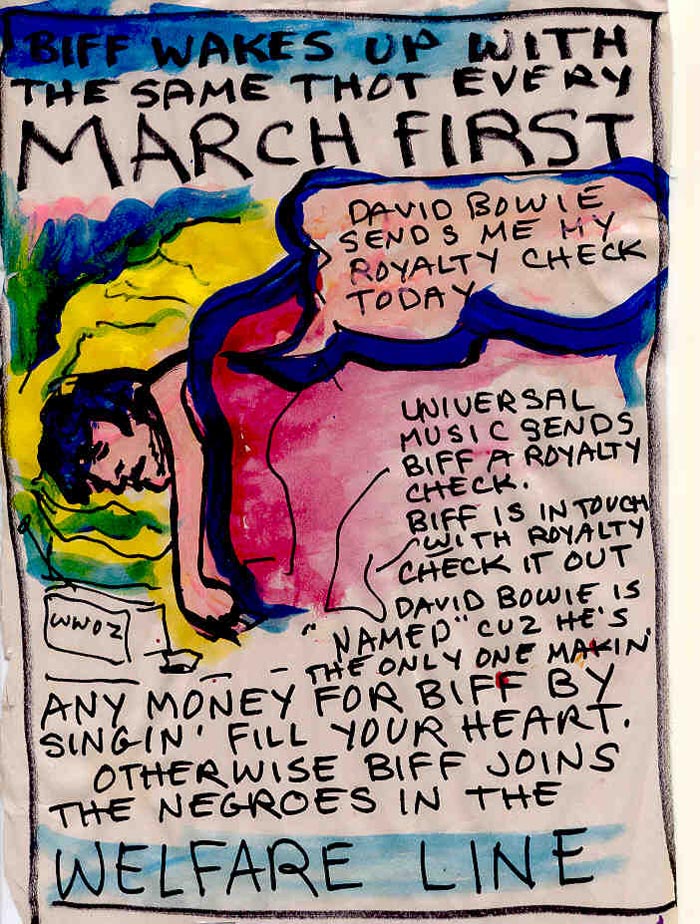 BIFF WAKES UP WITH
THE SAME THOT EVERY
MARCH FIRST
DAVID BOWIE
SENDS ME MY
ROYALTY CHECK
TODAY
UNIVERSAL
MUSIC SENDS
BIFF A ROYALTY
CHECK.
BIFF IS IN TOUCH
WITH ROYALTY
CHECK IT OUT
DAVID BOWIE IS
"NAMED" CUZ HE'S
THE ONLY ONE MAKIN'
ANY MONEY FOR BIFF BY
SINGIN' FILL YOUR HEART.
OTHERWISE BIFF JOINS
THE NEGROES IN THE
WELFARE LINE
WWOZ